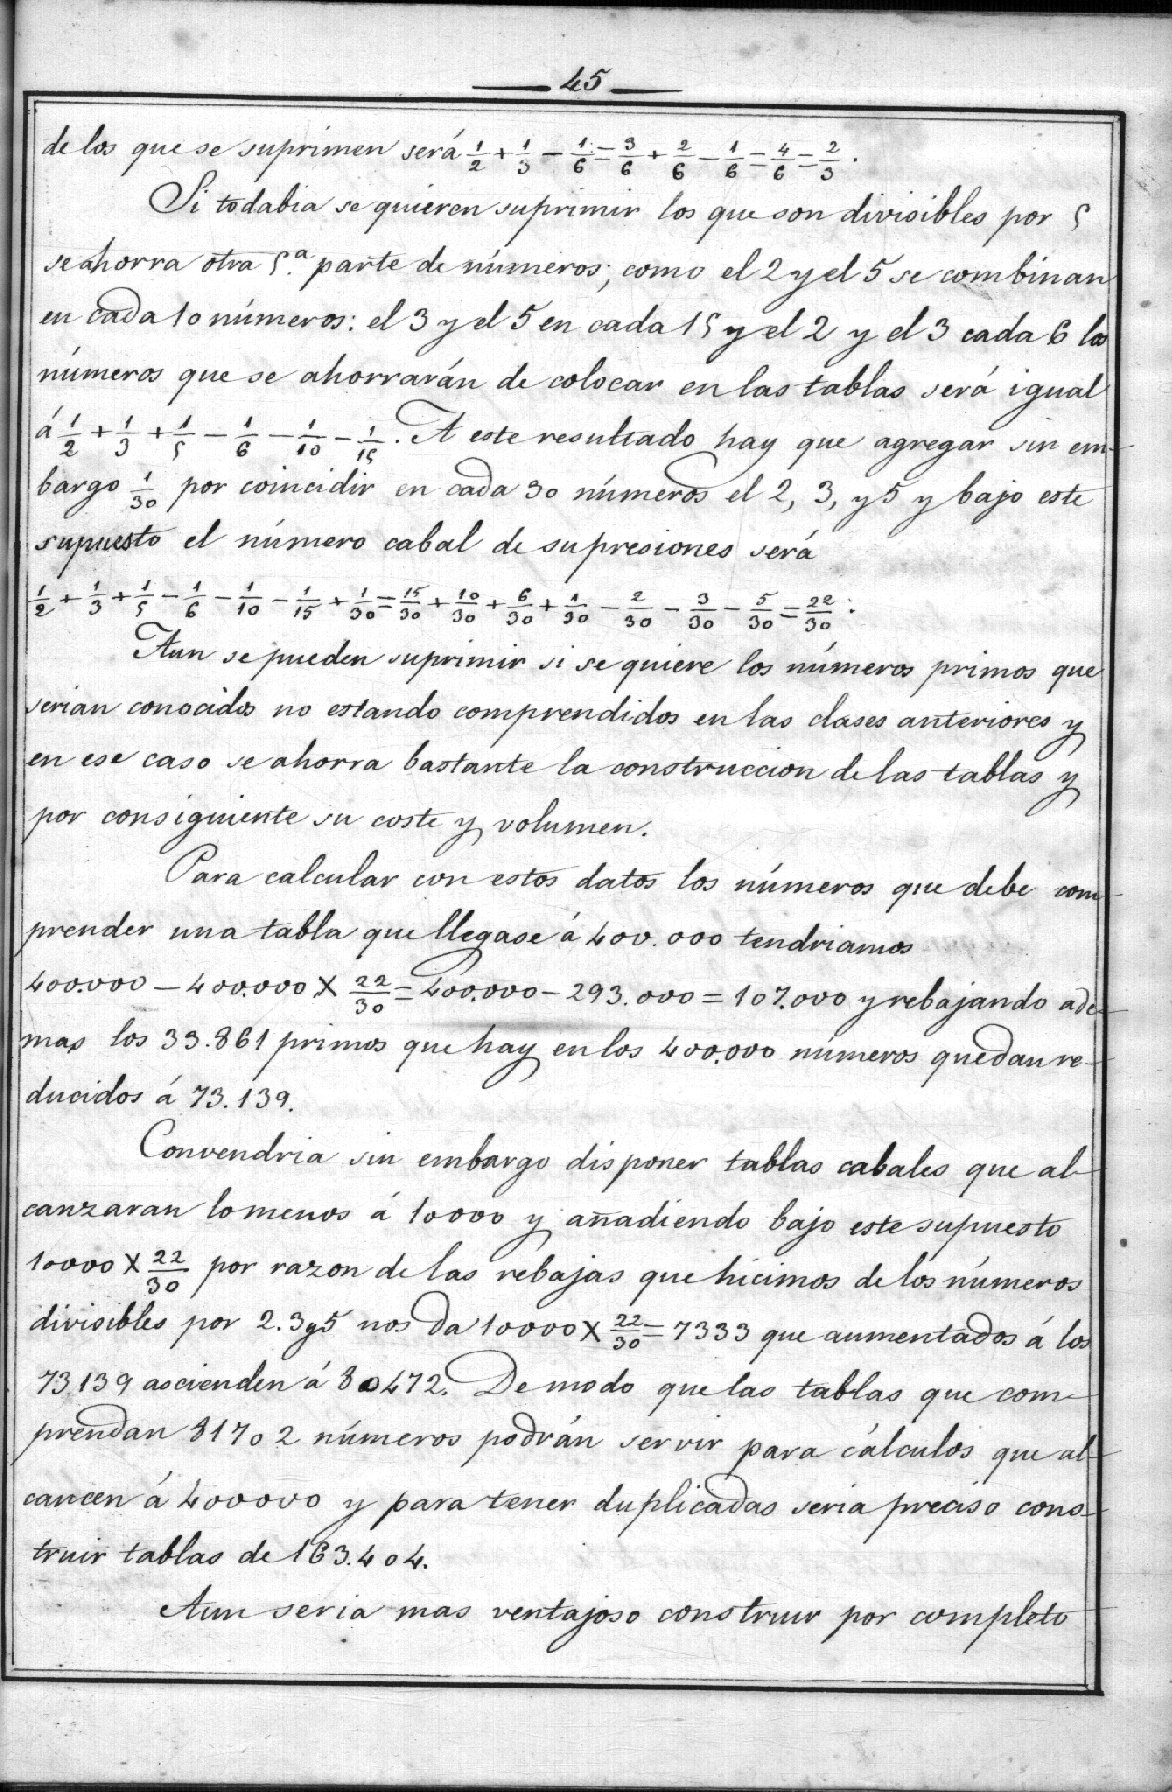 45
de los que se suprimen será 1/2 + 1/3 - 1/6 = 3/6 + 2/6 - 1/6 = 4/6 = 2/3.
Si todabia se quieren suprimir los que son divisibles por 5
se ahorra otra 5.ª parte de números; como el 2 y el 5 se combinan
en cada 10 números: el 3 y el 5 en cada 15 y el 2 y el 3 cada 6 los
números que se ahorrarán de colocar en las tablas será igual
á 1/2 + 1/3 + 1/5 - 1/6 - 1/10 - 1/15. A este resultado hay que agregar sin em-
bargo 1/30 por coincidir en cada 30 números el 2, 3, y 5 y bajo este
supuesto el número cabal de supresiones será
1/2 + 1/3 + 1/5 - 1/6 - 1/10 - 1/15 + 1/30 = 15/30 + 10/30 + 6/30 + 1/30 - 2/30 - 3/30 - 5/30 = 22/30.
Aun se pueden suprimir si se quiere los números primos que
serian conocidos no estando comprendidos en las clases anteriores y
en ese caso se ahorra bastante la construccion de las tablas y
por consiguiente su coste y volumen.
Para calcular con estos datos los números que debe com
prender una tabla que llegase á 400.000 tendriamos
400.000 - 400.000 X 22/30 = 400.000 - 293.000 = 107.000 y rebajando ade-
mas los 33.861 primos que hay en los 400.000 números quedan re-
ducidos á 73.139.
Convendria sin embargo disponer tablas cabales que al-
canzaran lo menos á 10000 y añadiendo bajo este supuesto
10000 X 22/30 por razon de las rebajas que hicimos de los números
divisibles por 2.3 y 5 nos da 10000 X 22/30 = 7333 que aumentados á los
73.139 ascienden á 80472. De modo que las tablas que com-
prendan 81702 números podrán servir para cálculos que al-
cancen á 400000 y para tener duplicadas seria preciso cons-
truir tablas de 163.404.
Aun seria mas ventajoso construir por completo